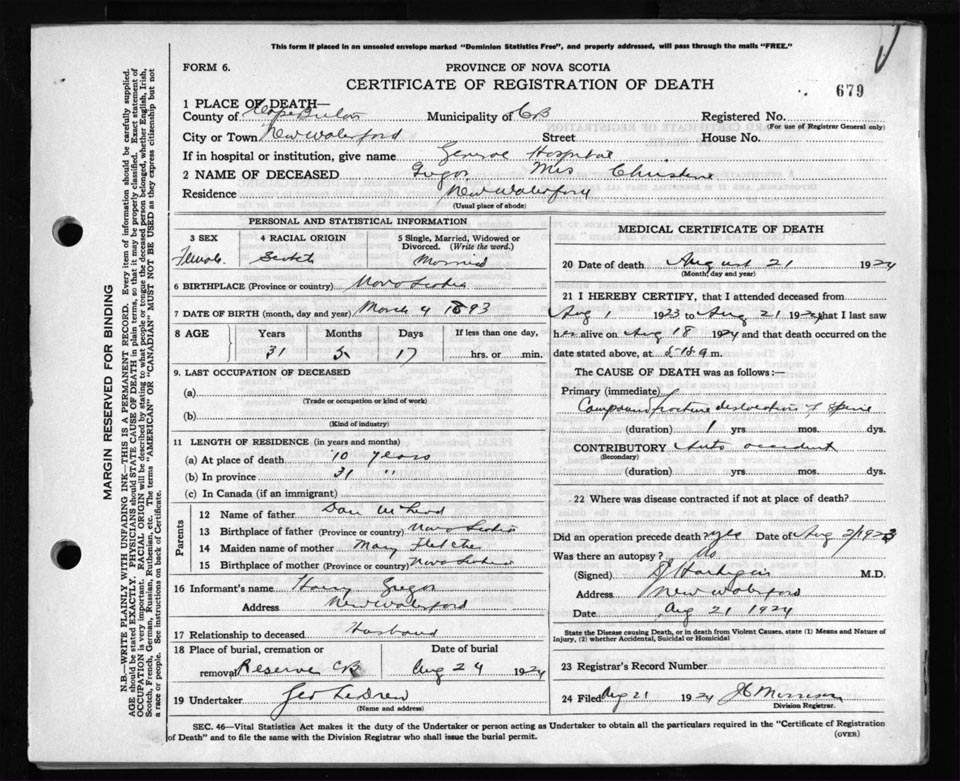 This form if placed in an unsealed envelope marked "Dominion Statistics Free", and properly addressed, will pass through the mails "FREE."
FORM 6.
PROVINCE OF NOVA SCOTIA
CERTIFICATE OF REGISTRATION OF DEATH
679
1 PLACE OF DEATH—
County of Cape Breton Municipality of CB Registered No.
(For use of Registrar General only)
City or Town New Waterford Street House No.
If in hospital or institution, give name General Hospital
2 NAME OF DECEASED Gugos Mrs Christine
Residence New Waterford
(Usual place of abode)
PERSONAL AND STATISTICAL INFORMATION
3 SEX
Female
4 RACIAL ORIGIN
Scotch
5 Single, Married, Widowed or Divorced. (Write the word.)
Married
6 BIRTHPLACE (Province or country) Nova Scotia
7 DATE OF BIRTH (month, day and year) March 4 1893
8 AGE Years Months Days If less than one day,
31 5 17 hrs. or min.
9. LAST OCCUPATION OF DECEASED
(a)
(Trade or occupation or kind of work)
(b)
(Kind of industry)
11 LENGTH OF RESIDENCE (in years and months)
(a) At place of death 10 years
(b) In province 31 "
(c) In Canada (if an immigrant)
Parents
12 Name of father Dan McLeod
13 Birthplace of father (Province or country) Nova Scotia
14 Maiden name of mother Mary Fletcher
15 Birthplace of mother (Province or country) Nova Scotia
16 Informant's name Harry Gugos
Address New Waterford
17 Relationship to deceased Husband
18 Place of burial, cremation or Date of burial
removal Reserve CB Aug 24 1924
19 Undertaker Geo LeDrew
(Name and address)
MEDICAL CERTIFICATE OF DEATH
20 Date of death August 21 1924
(Month, day and year)
21 I HEREBY CERTIFY, that I attended deceased from
Aug 1 1923 to Aug 21 1924 that I last saw
her alive on Aug 18 1924 and that death occurred on the
date stated above, at m.
The CAUSE OF DEATH was as follows:—
Primary (immediate)
Compound fracture dislocation of spine
(duration) 1 yrs mos. dys.
CONTRIBUTORY Auto accident
(Secondary)
(duration) yrs. mos. dys.
22 Where was disease contracted if not at place of death?
Did an operation precede death? yes Date of Aug 2/1923
Was there an autopsy? No
(Signed) Hartigan M.D.
Address New Waterford
Date Aug 21 1924
State the Disease causing Death, or in death from Violent Causes, state (1) Means and Nature of
Injury, (2) whether Accidental, Suicidal or Homicidal
23 Registrar's Record Number
24 Filed Aug 21 1924 JC Morrison
Division Registrar.
SEC. 46—Vital Statistics Act makes it the duty of the Undertaker or person acting as Undertaker to obtain all the particulars required in the "Certificate of Registration
of Death" and to file the same with the Division Registrar who shall issue the burial permit.
(OVER)
MARGIN RESERVED FOR BINDING
N.B.—WRITE PLAINLY WITH UNFADING INK—THIS IS A PERMANENT RECORD. Every item of information should be carefully supplied.
AGE should be stated EXACTLY. PHYSICIANS should STATE CAUSE OF DEATH in plain terms, so that it may be properly classified. Exact statement of
OCCUPATION is very important. RACIAL ORIGIN will be described by stating to what people or tongue the deceased person belonged, whether English, Irish,
Scotch, French, German, Russian, Ruthenian, etc. The terms "AMERICAN" OR "CANADIAN" MUST NOT BE USED as they express citizenship but not
a race or people. See instructions on back of Certificate.